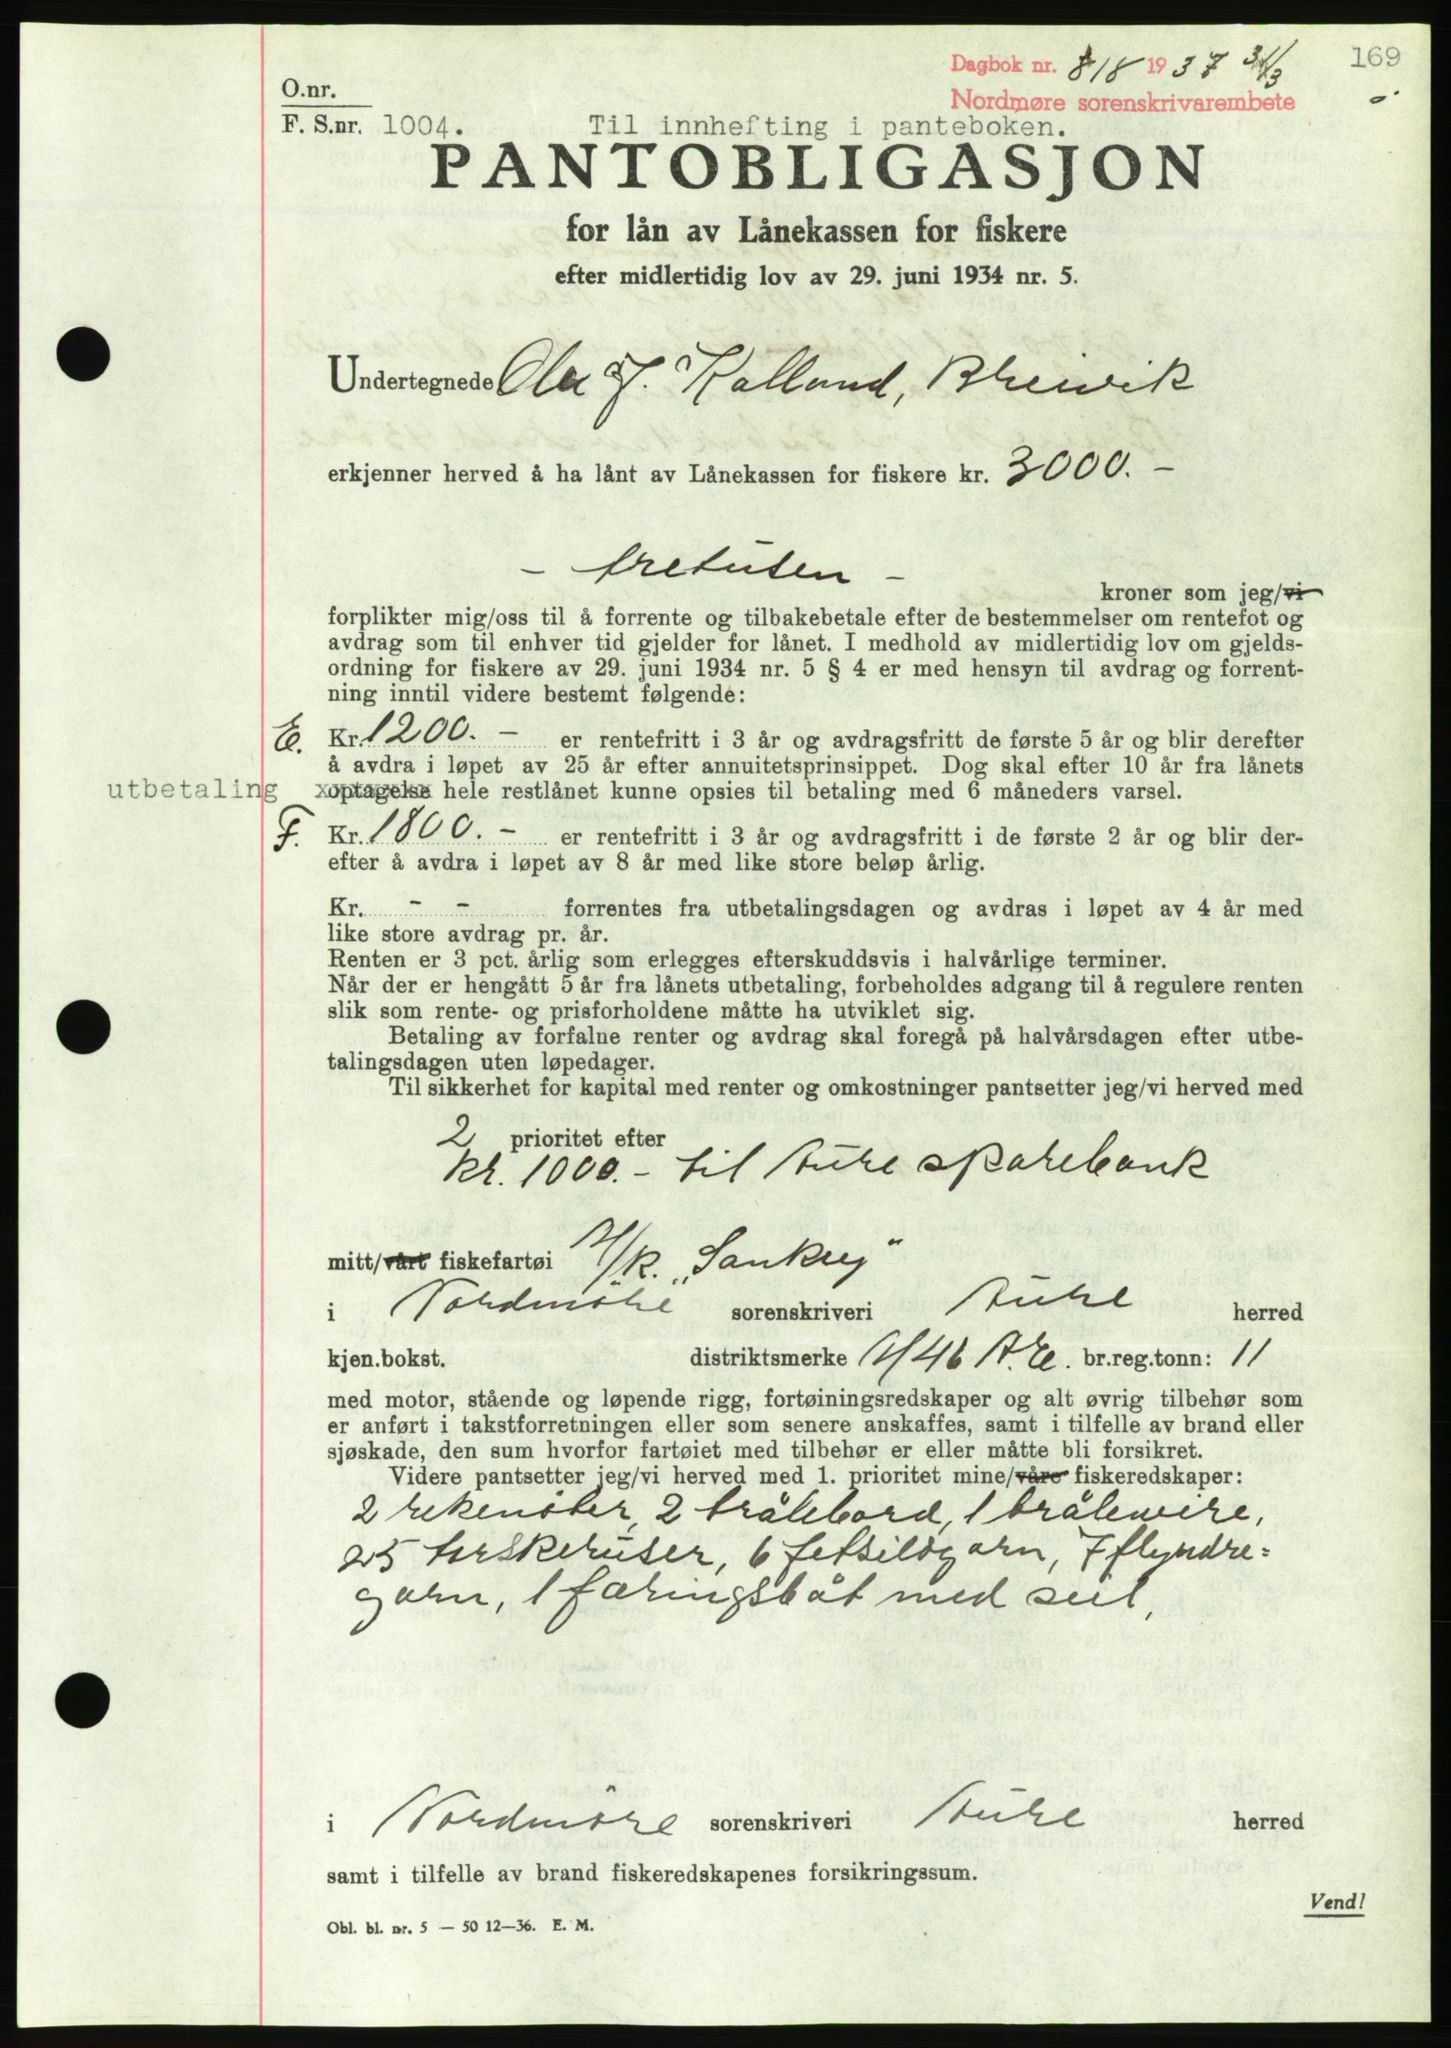 169
Dagbok nr. 818 1937 31/3
Nordmøre sorenskrivarembete
O.nr.
F. S.nr. 1004. Til innhefting i panteboken.
PANTOBLIGASJON
for lån av Lånekassen for fiskere
efter midlertidig lov av 29. juni 1934 nr. 5.
Undertegnede Ola J. Kalland, Breivik
erkjenner herved å ha lånt av Lånekassen for fiskere kr. 3000. –
– tretusen –
kroner som jeg/vi
forplikter mig/oss til å forrente og tilbakebetale efter de bestemmelser om rentefot og
avdrag som til enhver tid gjelder for lånet. I medhold av midlertidig lov om gjelds-
ordning for fiskere av 29. juni 1934 nr. 5 § 4 er med hensyn til avdrag og forrent-
ning inntil videre bestemt følgende:
E. Kr. 1200. – er rentefritt i 3 år og avdragsfritt de første 5 år og blir derefter
å avdra i løpet av 25 år efter annuitetsprinsippet. Dog skal efter 10 år fra lånets
utbetaling optagelse hele restlånet kunne opsies til betaling med 6 måneders varsel.
F. Kr. 1800. – er rentefritt i 3 år og avdragsfritt i de første 2 år og blir der-
efter å avdra i løpet av 8 år med like store beløp årlig.
Kr. – – forrentes fra utbetalingsdagen og avdras i løpet av 4 år med
like store avdrag pr. år.
Renten er 3 pct. årlig som erlegges efterskuddsvis i halvårlige terminer.
Når der er hengått 5 år fra lånets utbetaling, forbeholdes adgang til å regulere renten
slik som rente- og prisforholdene måtte ha utviklet sig.
Betaling av forfalne renter og avdrag skal foregå på halvårsdagen efter utbe-
talingsdagen uten løpedager.
Til sikkerhet for kapital med renter og omkostninger pantsetter jeg/vi herved med
2 prioritet efter
kr. 1000. – til Aure sparebank
mitt/vårt fiskefartøi M/k. „Sankey"
i Nordmöre sorenskriveri Aure herred
kjen.bokst. distriktsmerke M/46 A.E. br.reg.tonn: 11
med motor, stående og løpende rigg, fortøiningsredskaper og alt øvrig tilbehør som
er anført i takstforretningen eller som senere anskaffes, samt i tilfelle av brand eller
sjøskade, den sum hvorfor fartøiet med tilbehør er eller måtte bli forsikret.
Videre pantsetter jeg/vi herved med 1. prioritet mine/våre fiskeredskaper:
2 rekenöter, 2 trålebord, 1 trålewire,
25 torskeruser, 6 fetsildgarn, 7 flyndre=
garn, 1 færingsbåt med seil,
i Nordmöre sorenskriveri Aure herred
samt i tilfelle av brand fiskeredskapenes forsikringssum.
Vend!
Obl. bl. nr. 5 — 50 12—36. E. M.